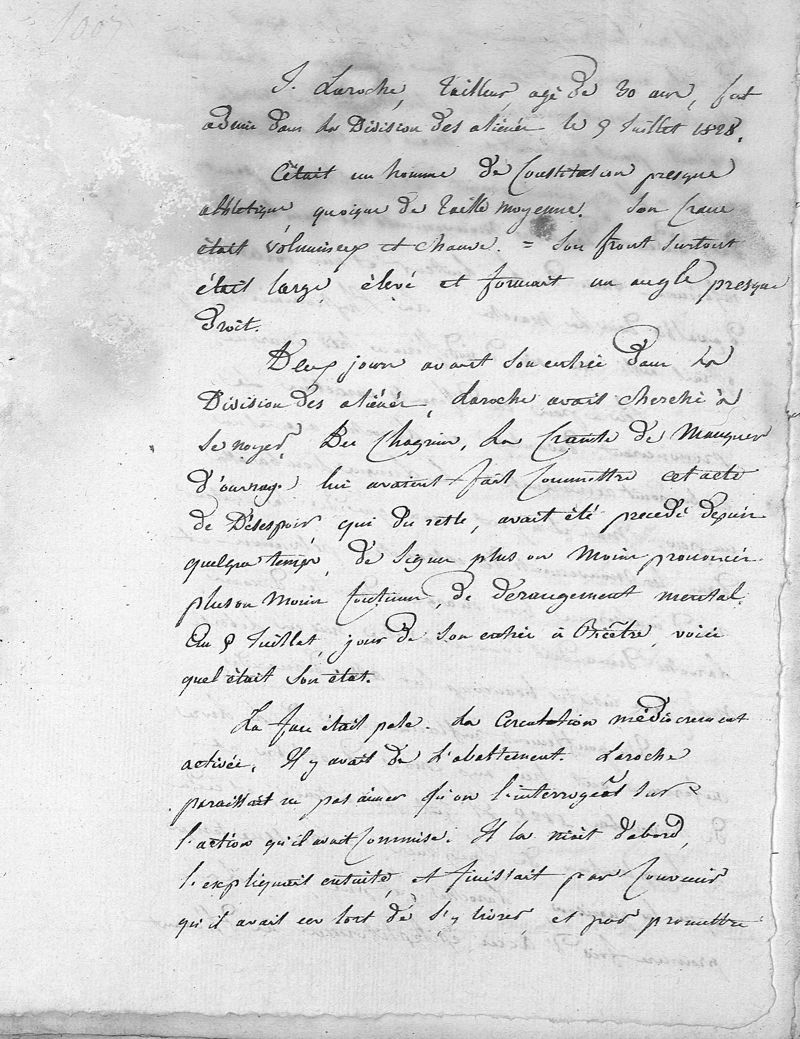 1007
J. Laroche, tailleur, agé de 30 ans, fut
admis dans la Division des aliénés le 9 Juillet 1828.
C'était un homme de Constitution presque
athlétique quoique de taille moyenne. Son Crane
était volumineux et chauve. = Son front surtout
était large, élevé et formant un angle presque
droit.
Deux jours avant son entrée dans la
Division des aliénés, Laroche avait cherché à
se noyer. Des Chagrins, la Crainte de Manquer
d'ouvrage lui avaient fait Commettre cet acte
de Désespoir, qui du reste, avait été precedé depuis
quelque temps, de Signes plus ou Moins prononcés
plus ou Moins Continus, de derangement mental.
Au 9 Juillet, jour de son entrée à Bicêtre, voici
quel était Son état.
La face était pale. La Circulation médiocrement
activée, Il y avait de L'abattement. Laroche
paraissait ne pas aimer qu'on l'interrogeât Sur
l'action qu'il avait Commise. Il la niait d'abord,
l'expliquait ensuite, et finissait par Convenir
qu'il avait eu tort de S'y livrer, et par promettre